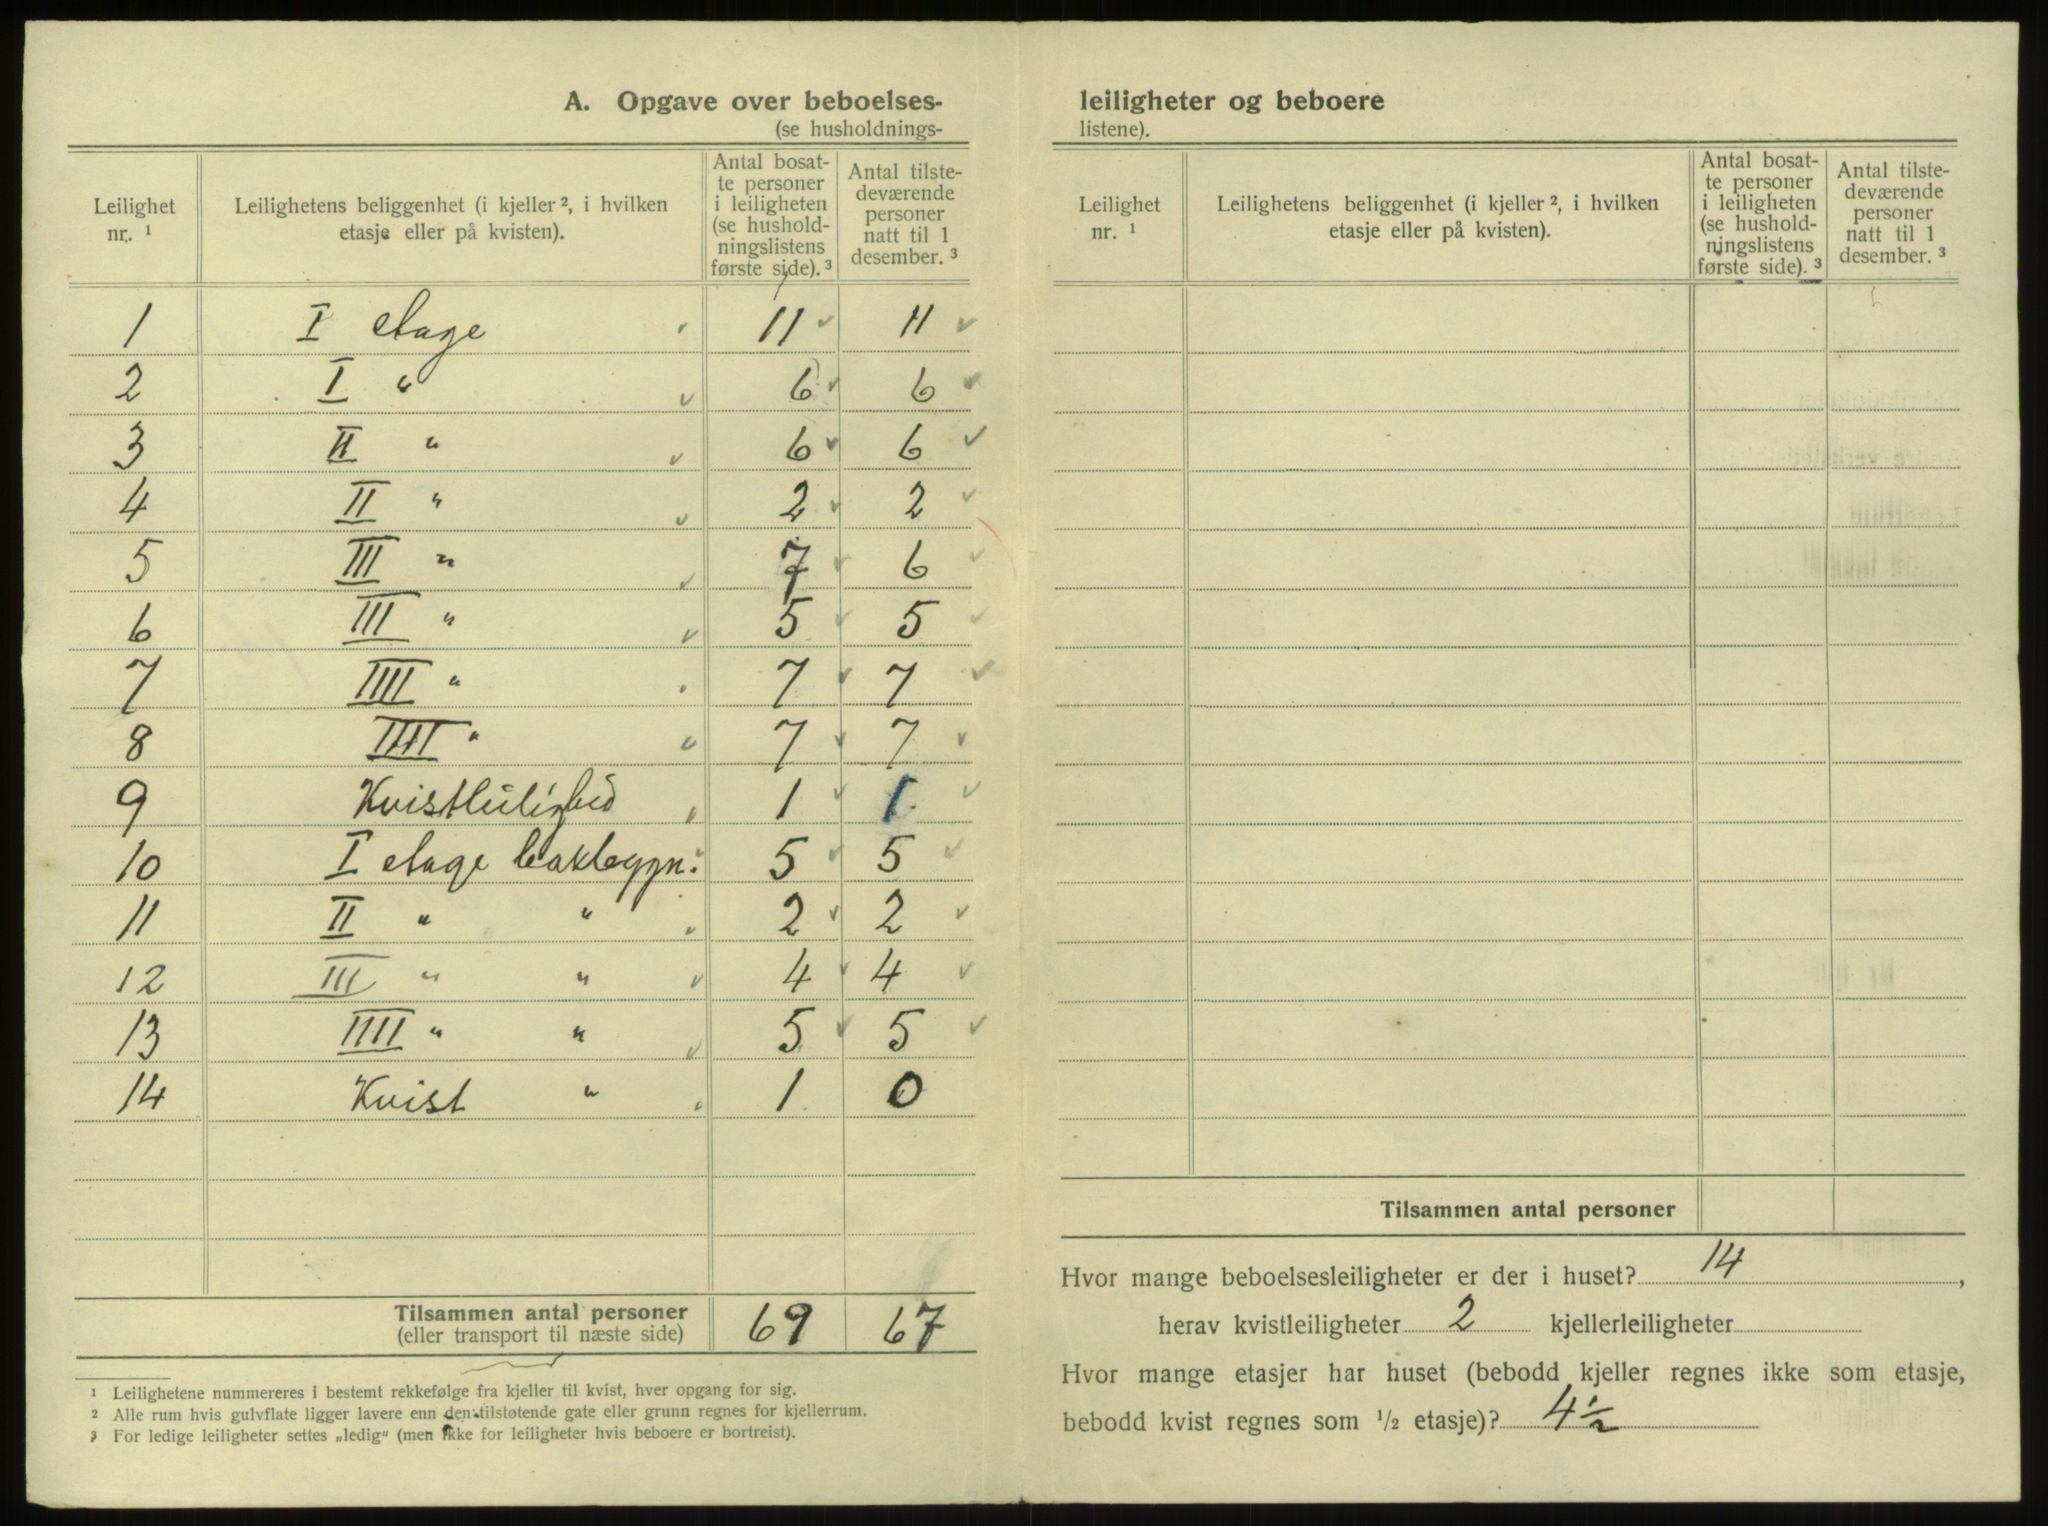 A. Opgave over beboelses-
(se husholdnings-
Leilighet nr. ¹ | Leilighetens beliggenhet (i kjeller ², i hvilken etasje eller på kvisten). | Antal bosatte personer i leiligheten (se husholdningslistens første side). ³ | Antal tilstedeværende personer natt til 1 desember. ³
1 I etage 11 11
2 I " 6 6
3 II " 6 6
4 II " 2 2
5 III " 7 6
6 III " 5 5
7 IIII " 7 7
8 IIII " 7 7
9 Kvistleilighed 1 1
10 I etage bakbygn. 5 5
11 II " " 2 2
12 III " " 4 4
13 IIII " " 5 5
14 Kvist " 1 0
Tilsammen antal personer 69 67
(eller transport til næste side)
¹ Leilighetene nummereres i bestemt rekkefølge fra kjeller til kvist, hver opgang for sig.
² Alle rum hvis gulvflate ligger lavere enn den tilstøtende gate eller grunn regnes for kjellerrum.
³ For ledige leiligheter settes „ledig" (men ikke for leiligheter hvis beboere er bortreist).
leiligheter og beboere
listene).
Leilighet nr. ¹ | Leilighetens beliggenhet (i kjeller ², i hvilken etasje eller på kvisten). | Antal bosatte personer i leiligheten (se husholdningslistens første side). ³ | Antal tilstedeværende personer natt til 1 desember. ³
Tilsammen antal personer
Hvor mange beboelsesleiligheter er der i huset? 14,
herav kvistleiligheter 2 kjellerleiligheter
Hvor mange etasjer har huset (bebodd kjeller regnes ikke som etasje,
bebodd kvist regnes som ½ etasje)? 4½